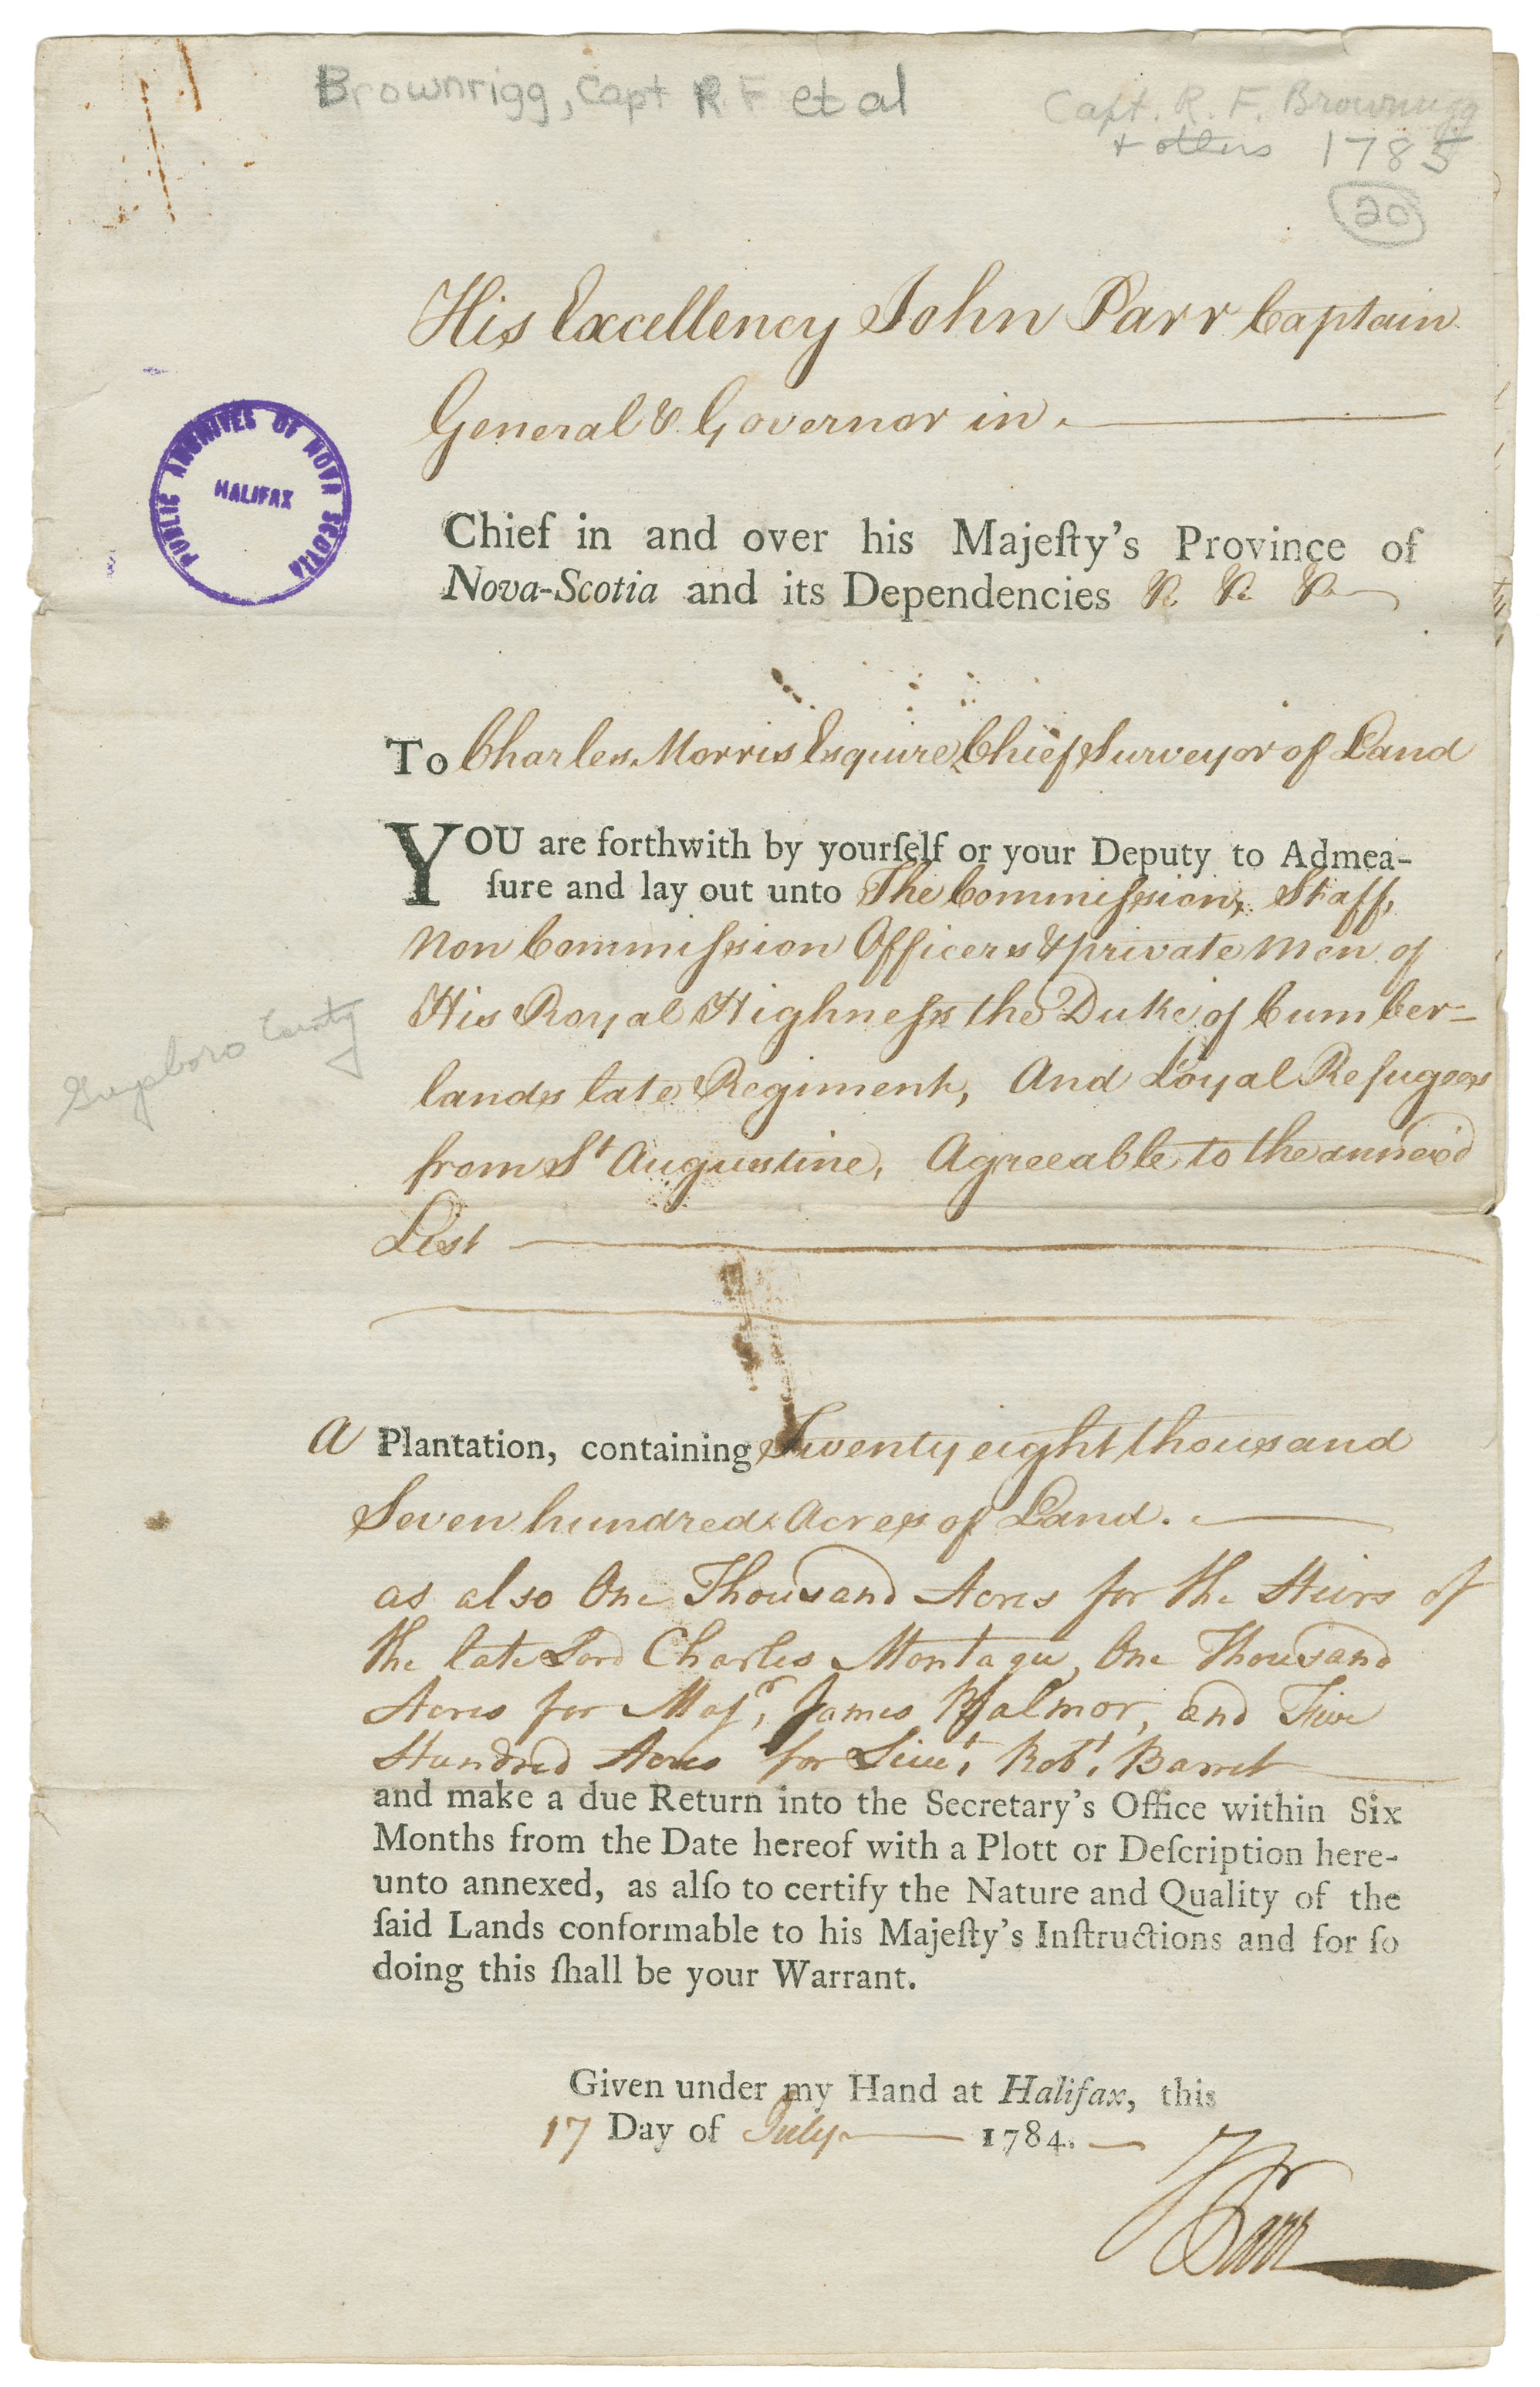 Brownrigg, Capt R F et al
Capt. R. F. Brownrigg
& others 1785
20
His Excellency John Parr Captain
General & Governor in
PUBLIC ARCHIVES OF NOVA SCOTIA
HALIFAX
Chief in and over his Majeſty's Province of
Nova-Scotia and its Dependencies &c &c &c
To Charles Morris Esquire Chief Surveyor of Land
YOU are forthwith by yourſelf or your Deputy to Admea-
ſure and lay out unto The Commiſsion, Staff,
Non Commiſsion Officers & private Men of
His Royal Highneſs the Duke of Cumber=
lands late Regiment, And Loyal Refugees
from St Augustine, Agreeable to the annex'd
List
Guysboro County
A Plantation, containing Twenty eight thousand
Seven hundred Acres of Land.
as also One Thousand Acres for the Heirs of
the late Lord Charles Montagu, One Thousand
Acres for Majr, James Balmor, and Five
Hundred Acres for Lieut, Robt, Barret
and make a due Return into the Secretary's Office within Six
Months from the Date hereof with a Plott or Deſcription here-
unto annexed, as alſo to certify the Nature and Quality of the
ſaid Lands conformable to his Majeſty's Inſtructions and for ſo
doing this ſhall be your Warrant.
Given under my Hand at Halifax, this
17 Day of July 1784.
J Parr